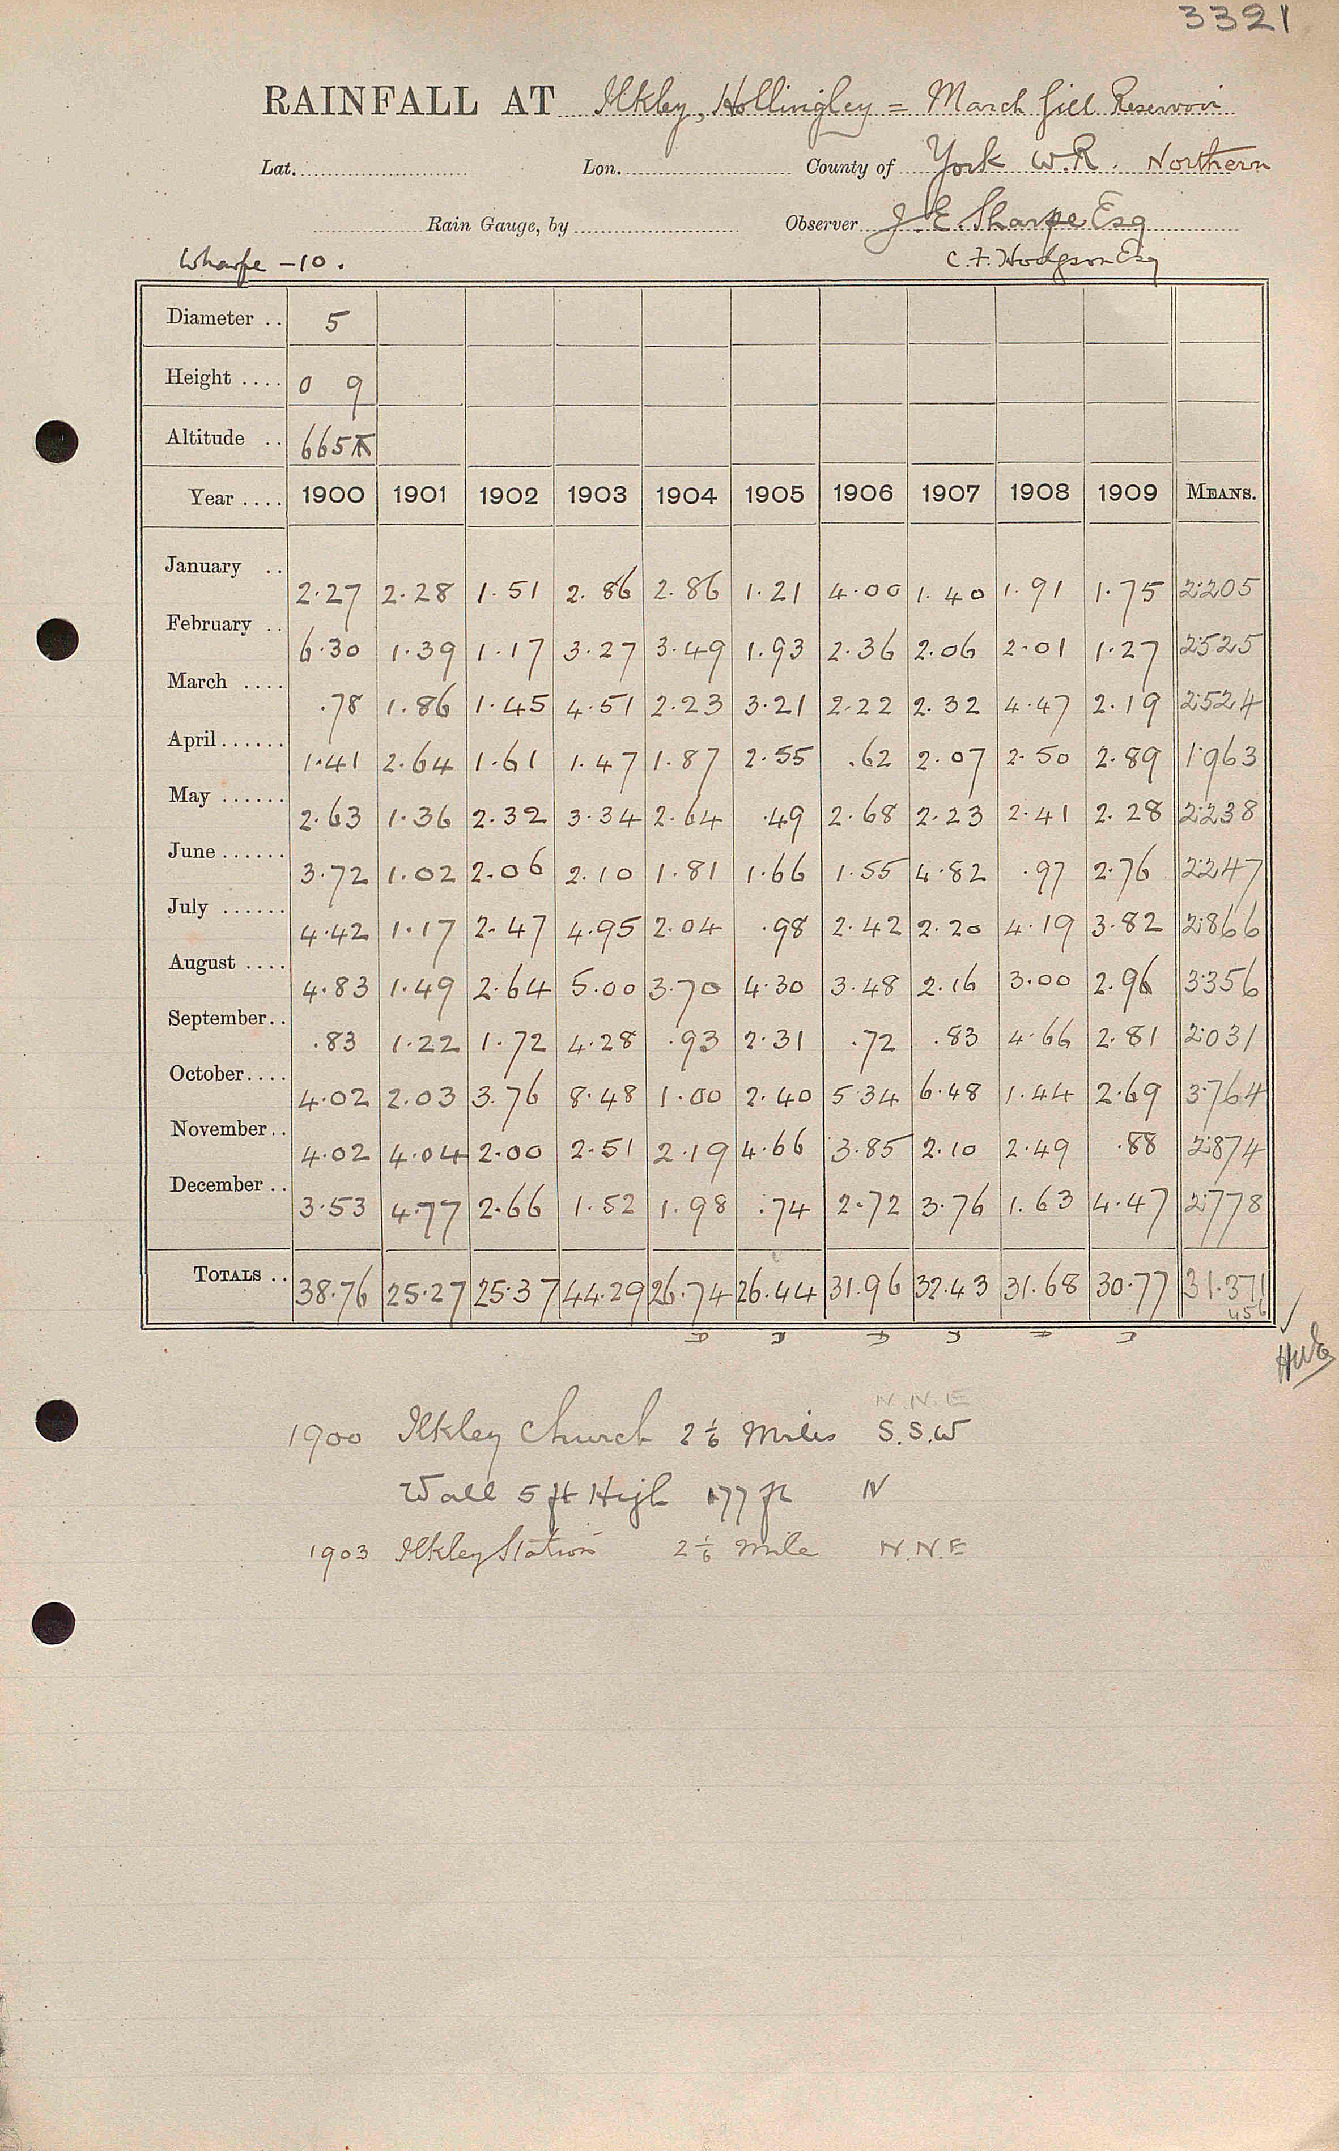 3321
RAINFALL AT Ilkley, Hollingley = March Gill Reservoir
Lat. Lon. County of York W.R. Northern
Rain Gauge, by Observer J. E. Sharpe Esq
Wharfe - 10. C. F. Hodgson Esq
Diameter .. 5
Height .... 0 9
Altitude .. 665
Year .... 1900 1901 1902 1903 1904 1905 1906 1907 1908 1909 MEANS.
January .. 2.27 2.28 1.51 2.86 2.86 1.21 4.00 1.40 1.91 1.75 2.205
February .. 6.30 1.39 1.17 3.27 3.49 1.93 2.36 2.06 2.01 1.27 2.525
March .... .78 1.86 1.45 4.51 2.23 3.21 2.22 2.32 4.47 2.19 2.524
April ...... 1.41 2.64 1.61 1.47 1.87 2.55 .62 2.07 2.50 2.89 1.963
May ...... 2.63 1.36 2.32 3.34 2.64 .49 2.68 2.23 2.41 2.28 2.238
June ...... 3.72 1.02 2.06 2.10 1.81 1.66 1.55 4.82 .97 2.76 2.247
July ...... 4.42 1.17 2.47 4.95 2.04 .98 2.42 2.20 4.19 3.82 2.866
August .... 4.83 1.49 2.64 5.00 3.70 4.30 3.48 2.16 3.00 2.96 3.356
September .. .83 1.22 1.72 4.28 .93 2.31 .72 .83 4.66 2.81 2.031
October .... 4.02 2.03 3.76 8.48 1.00 2.40 5.34 6.48 1.44 2.69 3.764
November .. 4.02 4.04 2.00 2.51 2.19 4.66 3.85 2.10 2.49 .88 2.874
December .. 3.53 4.77 2.66 1.52 1.98 .74 2.72 3.76 1.63 4.47 2.778
TOTALS .. 38.76 25.27 25.37 44.29 26.74 26.44 31.96 32.43 31.68 30.77 31.371
456
N.N.E
1900 Ilkley Church 2 1/6 Miles S.S.W
Wall 5 ft High 177 ft N
1903 Ilkley Station 2 1/6 mile N.N.E